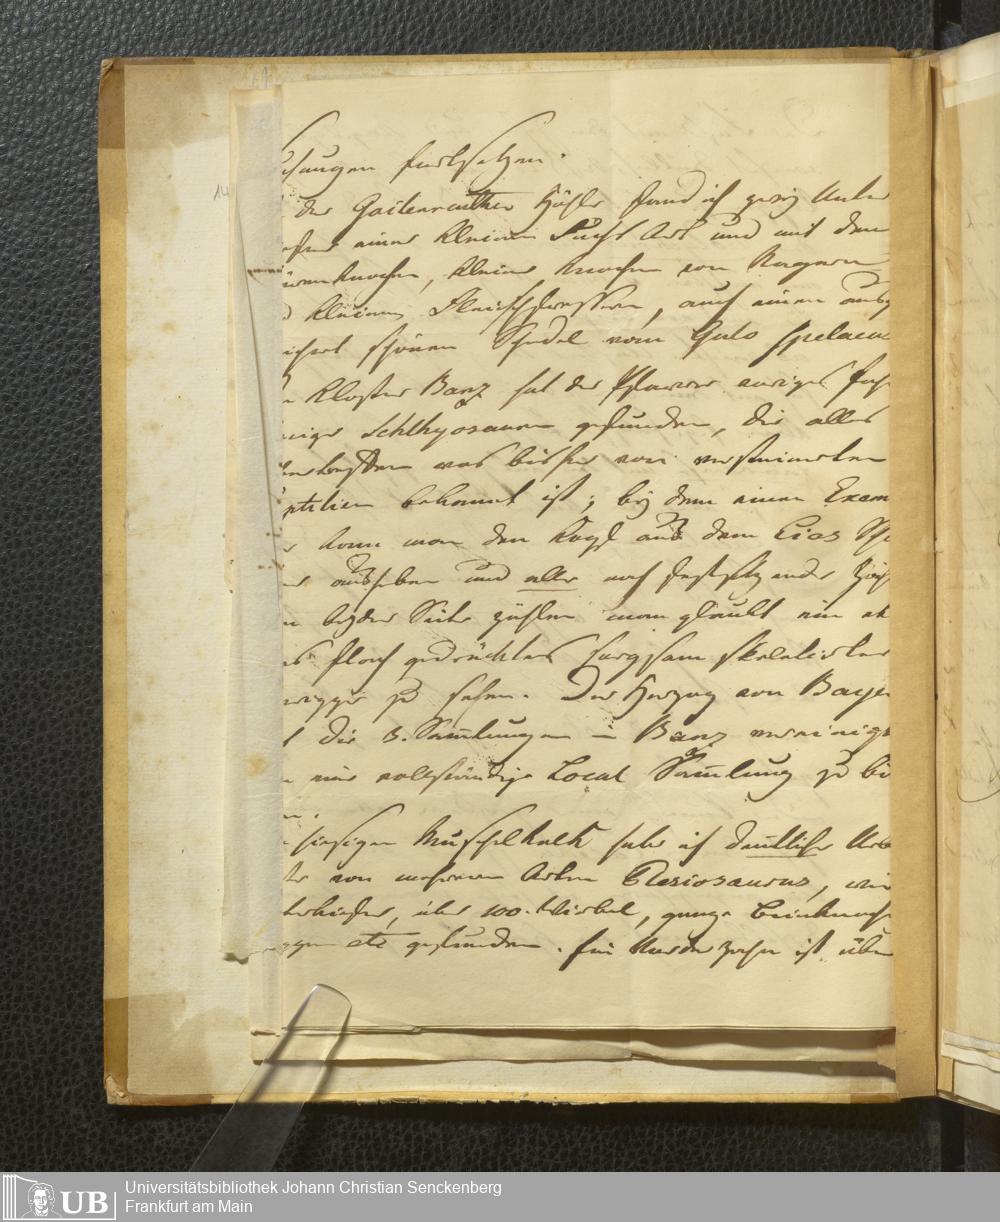 suchungen fortsetzen.
der Gailenreuther Höhle fand ich zwey Unter
kiefer einer kleinen Fuchs Art und mit den
Bärenknochen, kleine Knochen von Nagern
d kleinen Fleischfressern, auch einen ausge
ichnet schönen Schedel vom Gulo spelaeus
n Kloster Banz hat der Pfarrer voriges Jahr
einige Ichthyosauren gefunden, die alles
übertreffen was bisher von versteinerten
Reptilien bekannt ist; bey dem einen Exem
r kann man den Kopf aus dem Lias Schi
r ausheben und alle noch festsitzende Zäh
n beyder Seite zählen man glaubt ein et
as flach gedrücktes sorgsam skeletirtes
zu sehen. Der Herzog von Bayer
t die 3. Sammlungen in Banz vereinigt
m eine vollständige Local Sammlung zu bil
n.
hiesigen Muschelkalk habe ich deutliche Ueb
te von mehreren Arten Plesiosaurus, wie
Unterkiefer, über 100. Wirbel, ganze Beinknoch
Rippen etc gefunden. Ein zahn ist über
14
UB
Universitätsbibliothek Johann Christian Senckenberg
Frankfurt am Main